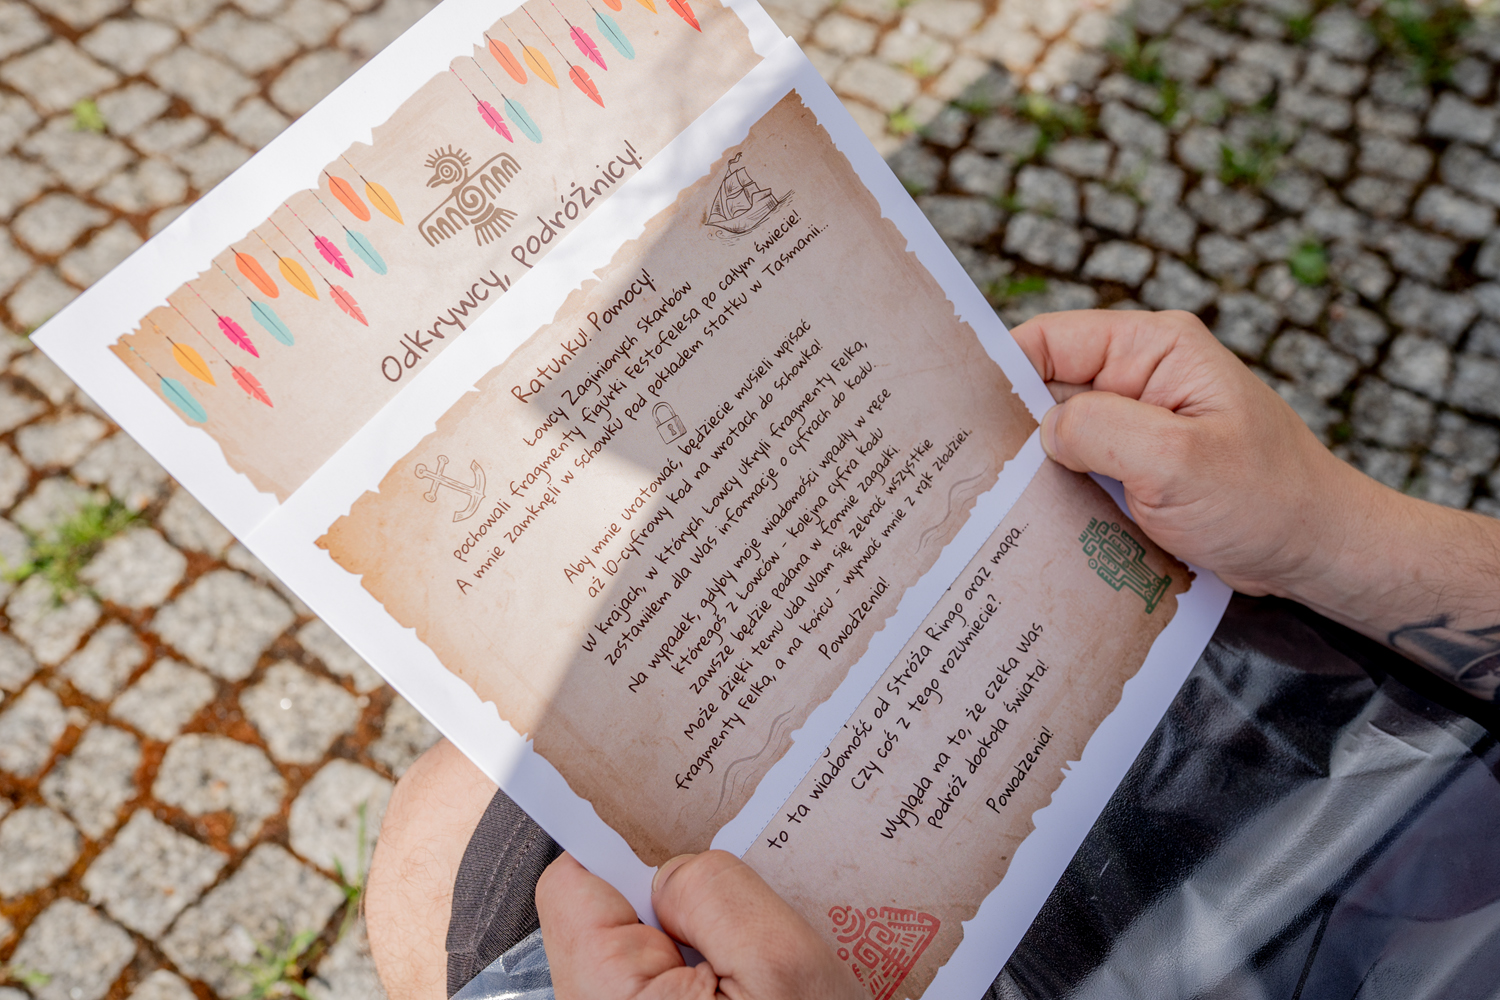 Odkrywcy, podróżnicy!
Ratunku! Pomocy!
Łowcy Zaginionych Skarbów
pochowali fragmenty figurki Festofelesa po całym świecie!
A mnie zamknęli w schowku pod pokładem statku w Tasmanii...
Aby mnie uratować, będziecie musieli wpisać
aż 10-cyfrowy kod na wrotach do schowka!
W krajach, w których Łowcy ukryli fragmenty Felka,
zostawiłem dla Was informacje o cyfrach do kodu.
Na wypadek, gdyby moje wiadomości wpadły w ręce
któregoś z Łowców - kolejna cyfra kodu
zawsze będzie podana w formie zagadki.
Może dzięki temu uda Wam się zebrać wszystkie
fragmenty Felka, a na końcu - wyrwać mnie z rąk złodziei.
Powodzenia!
to ta wiadomość od Stróża Ringo oraz mapa...
Czy coś z tego rozumiecie?
Wygląda na to, że czeka Was
podróż dookoła świata!
Powodzenia!